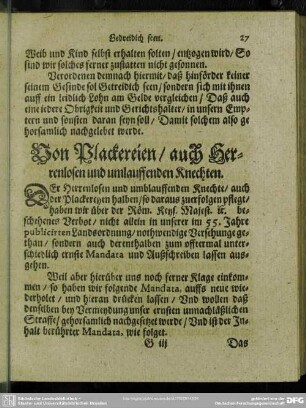 Getreidich seen. 27
Weib und Kind selbst erhalten solten / entzogen wird / So
sind wir solches ferner zustatten nicht gesonnen.
Verordenen demnach hiermit / daß hinförder keiner
seinem Gesinde sol Getreidich seen / sondern sich mit ihnen
auff ein leidlich Lohn am Gelde vergleichen / Daß auch
eine iedere Obrigkeit und Gerichtshalter / in unsern Emp-
tern und sonsten daran seyn soll / Damit solchem also ge
horsamlich nachgelebet werde.
Von Plackereien / auch Her-
renlosen und umlauffenden Knechten.
DEr Herrenlosen und umblauffenden Knechte / auch
der Plackereyen halben / so daraus zuerfolgen pfleget /
haben wir über der Röm. Keys. Majest. ꝛc. be-
schehenes Verbot / nicht allein in unserer im 55. Jahre
publicirten Landsordnung / nothwendige Versehunge ge-
than / sondern auch derenthalben zum offtermal unter-
schiedlich ernste Mandata und Außschreiben lassen aus-
gehen.
Weil aber hierüber uns noch ferner Klage einkom-
men / so haben wir folgende Mandata, auffs neue wie-
derholet / und hieran drücken lassen / Und wollen daß
denselben bey Vermeydung unser ernsten unnachläßlichen
Straffe / gehorsamlich nachgesetzet werde / Und ist der In-
halt berührter Mandata, wie folget.
G iij Das